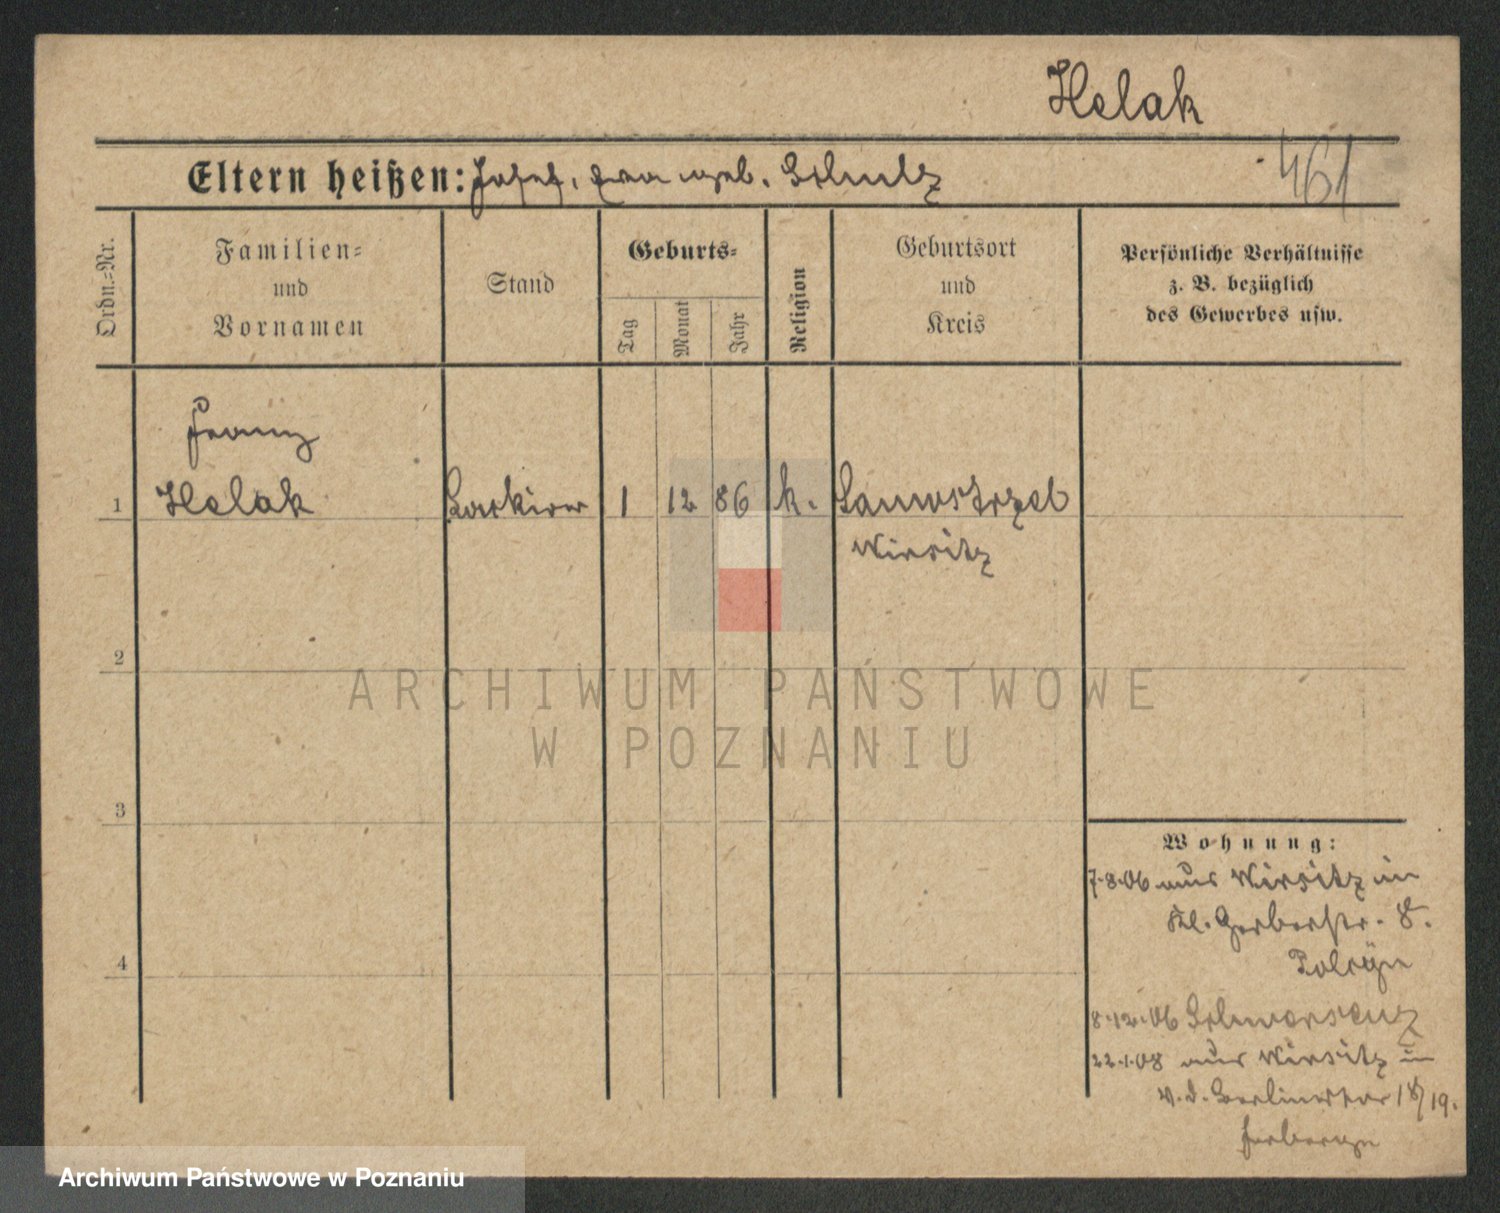 Helak
Eltern heißen: Josef, Eva geb. Schulz
461
Ordn.-Nr.
Familien-
und
Vornamen
Stand
Geburts-
Tag
Monat
Jahr
Religion
Geburtsort
und
Kreis
Persönliche Verhältnisse
z. B. bezüglich
des Gewerbes usw.
Franz
1 Helak Lackirer 1 12 86 k. Samostrzel
Wirsitz
2
ARCHIWUM PAŃSTWOWE
W POZNANIU
3
Wohnung:
7.8.06 aus Wirsitz in
Kl. Gerberstr. 8.
4
8.12.06 Schwersenz
22.1.08 aus Wirsitz in
v. d. Berlinertor 18/19.
Herberge
Archiwum Państwowe w Poznaniu